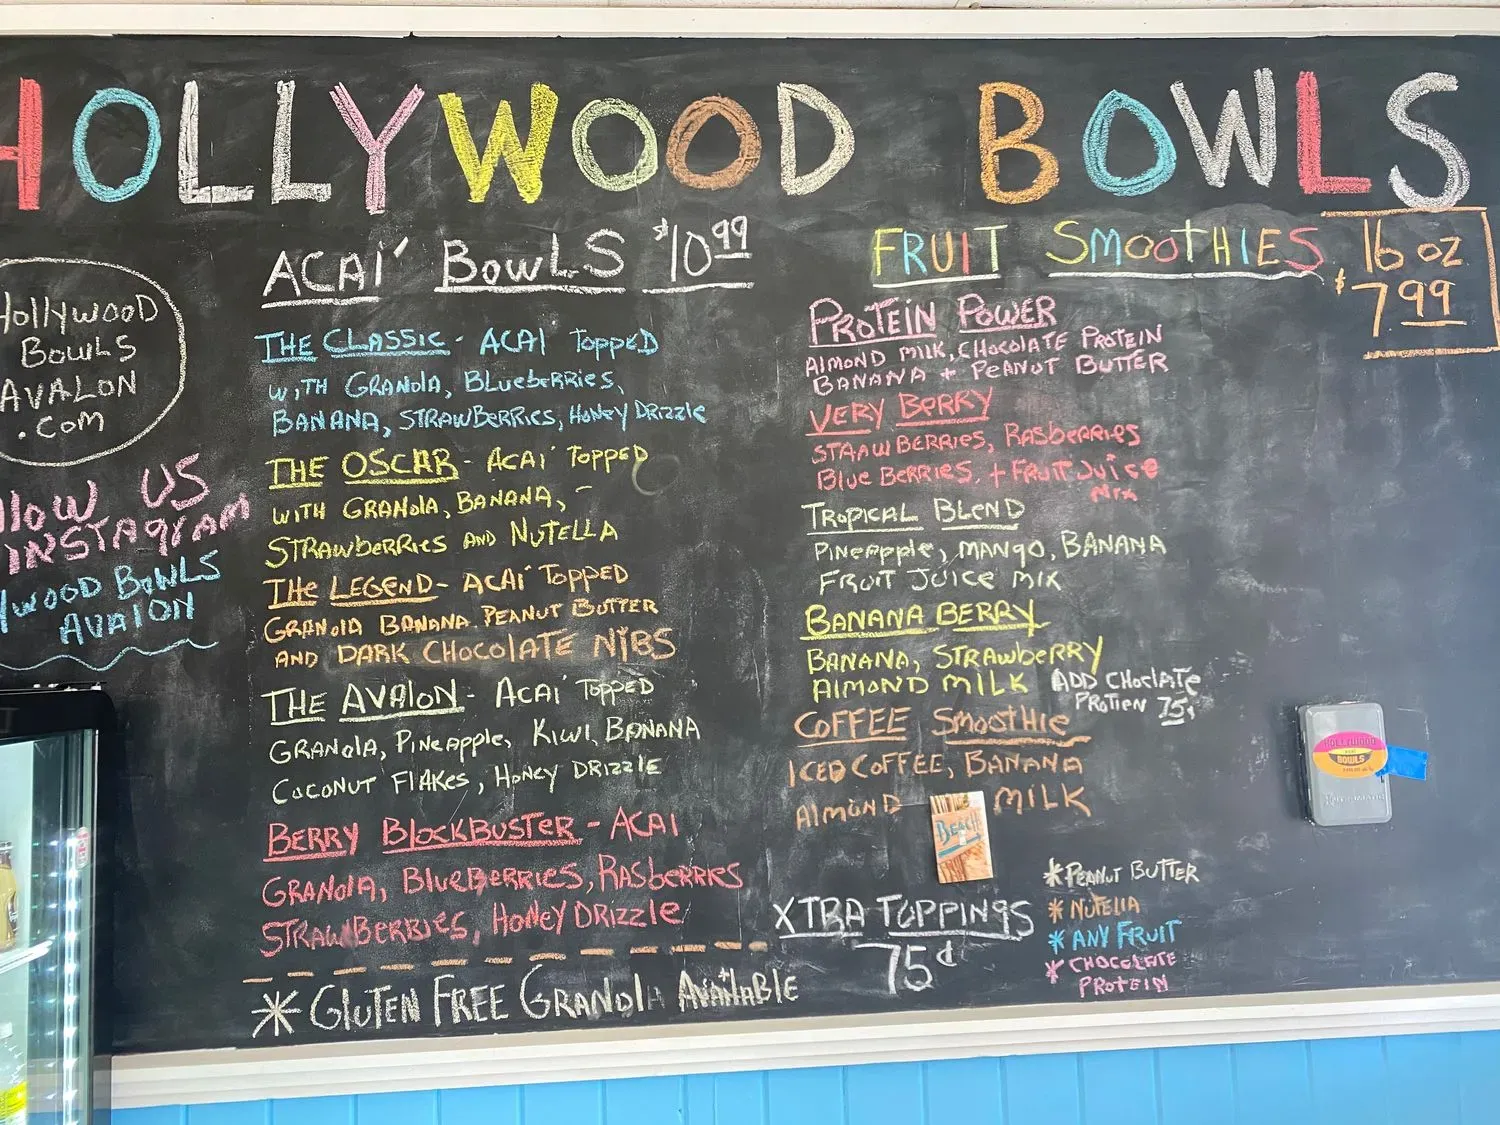 HOLLYWOOD BOWLS
HOLLYWOOD
BOWLS
AVALON
.COM
LLOW US
INSTAGRAM
LYWOOD BOWLS
AVALON
ACAI´ BOWLS $10.99
THE CLASSIC - ACAI TOPPED
WITH GRANOLA, BLUEBERRIES,
BANANA, STRAWBERRIES, HONEY DRIZZLE
THE OSCAR - ACAI´ TOPPED
WITH GRANOLA, BANANA, -
STRAWBERRIES AND NUTELLA
THE LEGEND - ACAI´ TOPPED
GRANOLA BANANA. PEANUT BUTTER
AND DARK CHOCOLATE NIBS
THE AVALON - ACAI´ TOPPED
GRANOLA, PINEAPPLE, KIWI, BANANA
COCONUT FLAKES, HONEY DRIZZLE
BERRY BLOCKBUSTER - ACAI
GRANOLA, BLUEBERRIES, RASBERRIES
STRAWBERRIES, HONEY DRIZZLE
* GLUTEN FREE GRANOLA AVAILABLE
FRUIT SMOOTHIES 16 OZ
$7.99
PROTEIN POWER
ALMOND MILK, CHOCOLATE PROTEIN
BANANA + PEANUT BUTTER
VERY BERRY
STRAWBERRIES, RASBERRIES
BLUE BERRIES, + FRUIT JUICE
MIX
TROPICAL BLEND
PINEAPPLE, MANGO, BANANA
FRUIT JUICE MIX
BANANA BERRY
BANANA, STRAWBERRY
ALMOND MILK ADD CHOCLATE
PROTIEN 75¢
COFFEE SMOOTHIE
ICED COFFEE, BANANA
ALMOND MILK
BEACH
HOLLYWOOD
BOWLS
XTRA TOPPINGS
75¢
* PEANUT BUTTER
* NUTELLA
* ANY FRUIT
* CHOCELATE
PROTEIN